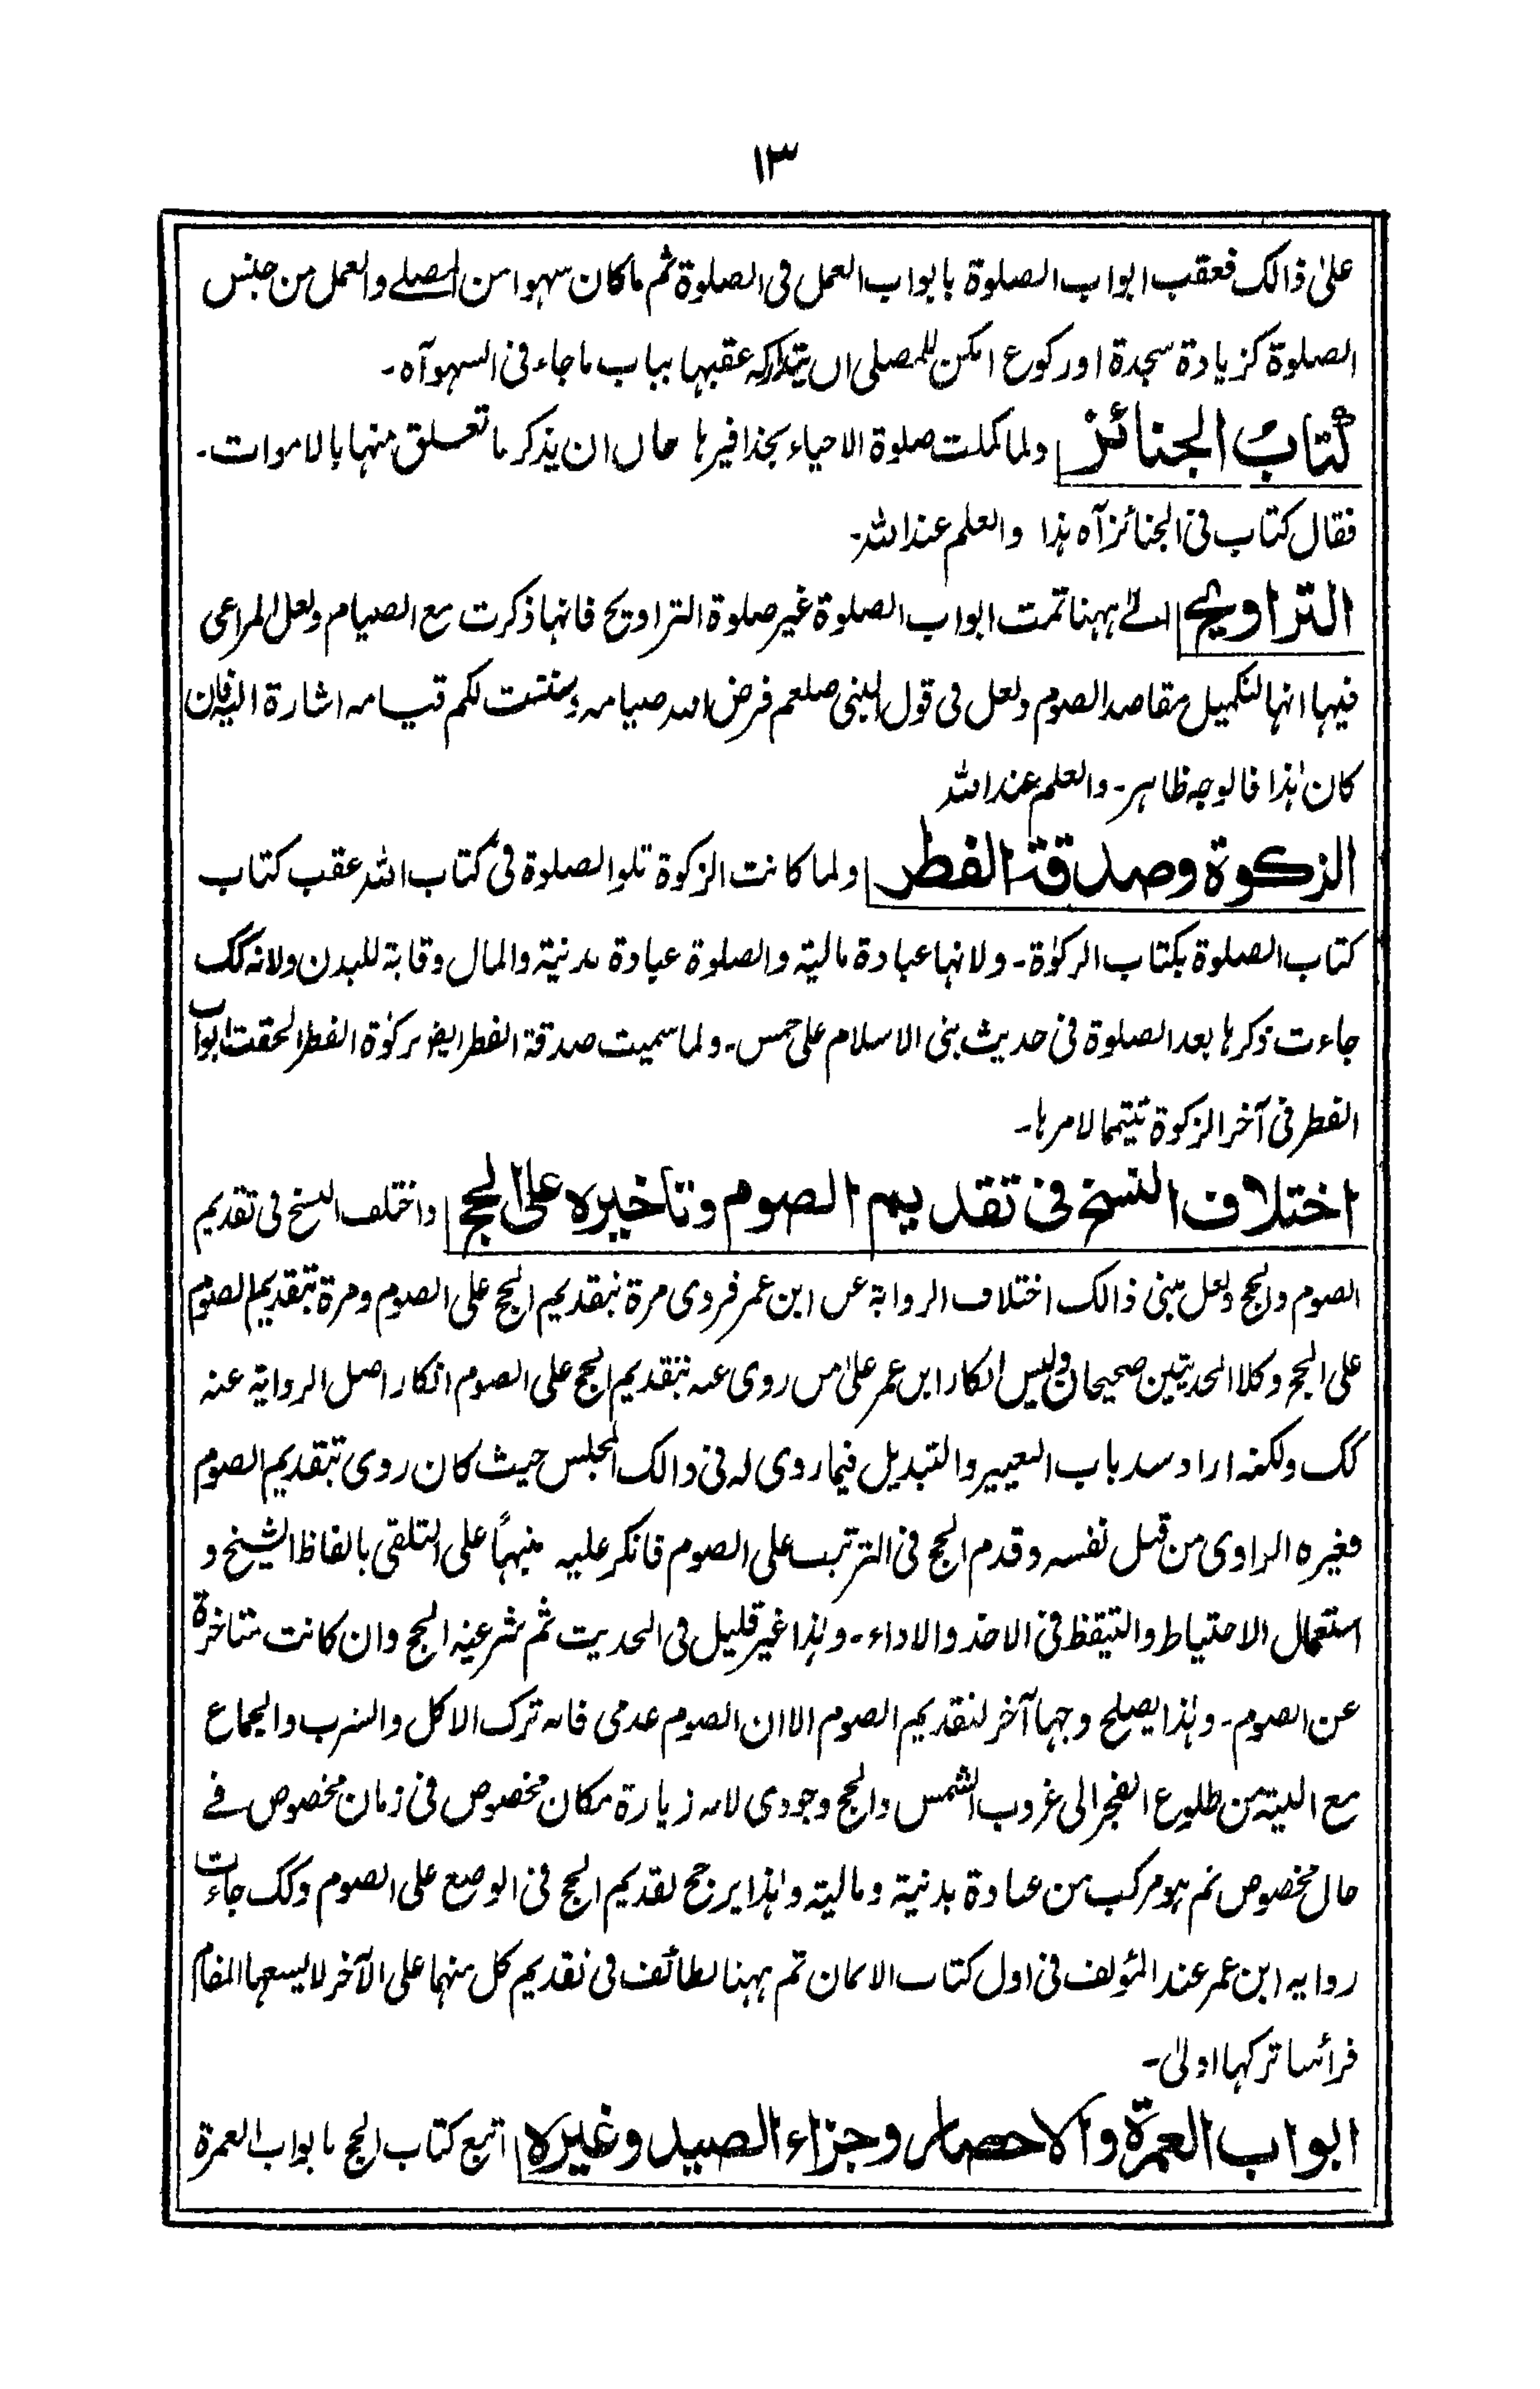 ١٣
علىٰ ذالك فعقب ابواب الصلوة بابواب العمل فى الصلوة ثم ماكان سهوا من المصلے والعمل من جنس
الصلوة كزيادة سجدة اوركوع امكن للمصلى ان يتداركه عقبها بباب ماجاء فى السهو آه ـ
كتاب الجنائز ولما كملت صلوة الاحياء بحذافيرها حان ان يذكر ما تعلق منها بالاموات ـ
فقال كتاب فى الجنائز آه هذا والعلم عند الله ـ
التراويح الے ههنا تمت ابواب الصلوة غير صلوة التراويح فانها ذكرت مع الصيام ولعل المراعى
فيها انها لتكميل مقاصد الصوم ولعل فى قول النبى صلعم فرض الله صيامه وسننت لكم قيامه اشارة اليه فان
كان هٰذا فالوجه ظاهر ـ والعلم عند الله
الزكوة وصدقة الفطر ولما كانت الزكوة تلو الصلوة فى كتاب الله عقب كتاب
كتاب الصلوة بكتاب الزكوٰة ـ ولانها عبادة مالية والصلوة عبادة بدنية والمال وقاية للبدن ولانه كك
جاءت ذكرها بعد الصلوة فى حديث بنى الاسلام على خمس ـ ولما سميت صدقة الفطر ايضـ زكوٰة الفطر الحقت ابواب
الفطر فى آخر الزكوة تتيما لامرها ـ
اختلاف النسخ فى تقديم الصوم وتاخيره على الحج واختلف النسخ فى تقديم
الصوم والحج ولعل مبنى ذالك اختلاف الرواية عن ابن عمر فروى مرة بتقديم الحج على الصوم ومرة بتقديم الصوم
على الحج وكلا الحديثين صحيحان وليس انكار ابن عمر علىٰ من روى عنه بتقديم الحج على الصوم انكار اصل الرواية عنه
كك ولكنه اراد سد باب التعيير والتبديل فيما روى له فى ذالك المجلس حيث كان روى بتقديم الصوم
فغيره الراوى من قبل نفسه وقدم الحج فى الترتيب على الصوم فانكر عليه منبهاً على التلقى بالفاظ الشيخ و
استعمال الاحتياط والتيقظ فى الاخذ والاداء ـ وهٰذا غير قليل فى الحديث ثم شرعية الحج وان كانت متاخرة
عن الصوم ـ وهٰذا يصلح وجها آخر لتقديم الصوم الا ان الصوم عدمى فانه ترك الاكل والشرب والجماع
مع النية من طلوع الفجر الى غروب الشمس والحج وجودى لانه زيارة مكان مخصوص فى زمان مخصوص فے
حال مخصوص ثم هو مركب من عبادة بدنية ومالية وهٰذا يرجح تقديم الحج فى الوضع على الصوم وكك جاءت
رواية ابن عمر عند المؤلف فى اول كتاب الايمان ثم ههنا لطائف فى تقديم كل منهما على الآخر لا يسعها المقام
فرأينا تركها اولىٰ ـ
ابواب العمرة والاحصار وجزاء الصيد وغيره اتبع كتاب الحج بابواب العمرة